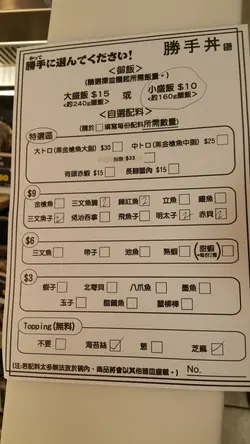 かって
勝手に選んでください! 勝手丼
<御飯>
(請選擇並圈起所需飯量。)
大盛飯 $15 或 小盛飯 $10
<約240g糰飯> <約160g糰飯>
<自選配料>
(請於□填寫每份配料所需數量)
特選區
大トロ(黑金槍魚大腩) $30 □ 中トロ(黑金槍魚中腩) $25 □
$33
有頭赤蝦 $15 □ 長腳蟹肉 $15 □
$9
金槍魚 □ 三文魚腩 2 □ 立魚 □ 鰻魚 □
三文魚子 2 吳治吞拿 □ 飛魚子 □ 明太子 2 赤貝 2
$6
三文魚 □ 帶子 □ 池魚 □ 熟蝦 □ 甜蝦 □
$3
蝦子 □ 北寄貝 □ 八爪魚 □ 墨魚 □
玉子 □ 醋鯖魚 □ 蟹柳棒 □
Topping(無料)
不要 □ 海苔絲 ✓ 葱 □ 芝麻 ✓
(注:若配料太多無法放於碗內,商品將會以其他器皿盛載。) No.